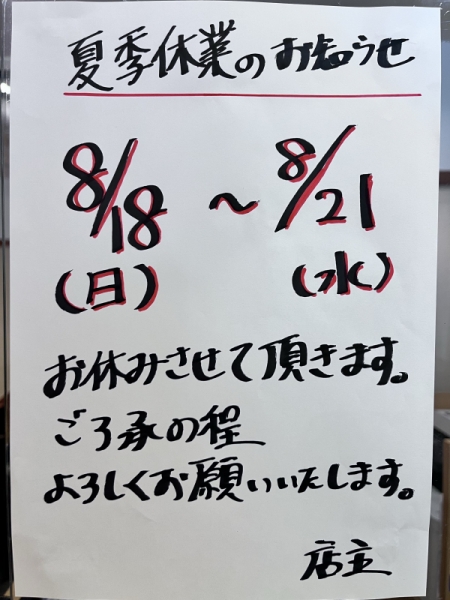 夏季休業のお知らせ
8/18 ~ 8/21
(日) (水)
お休みさせて頂きます。
ご了承の程
よろしくお願いいたします。
店主